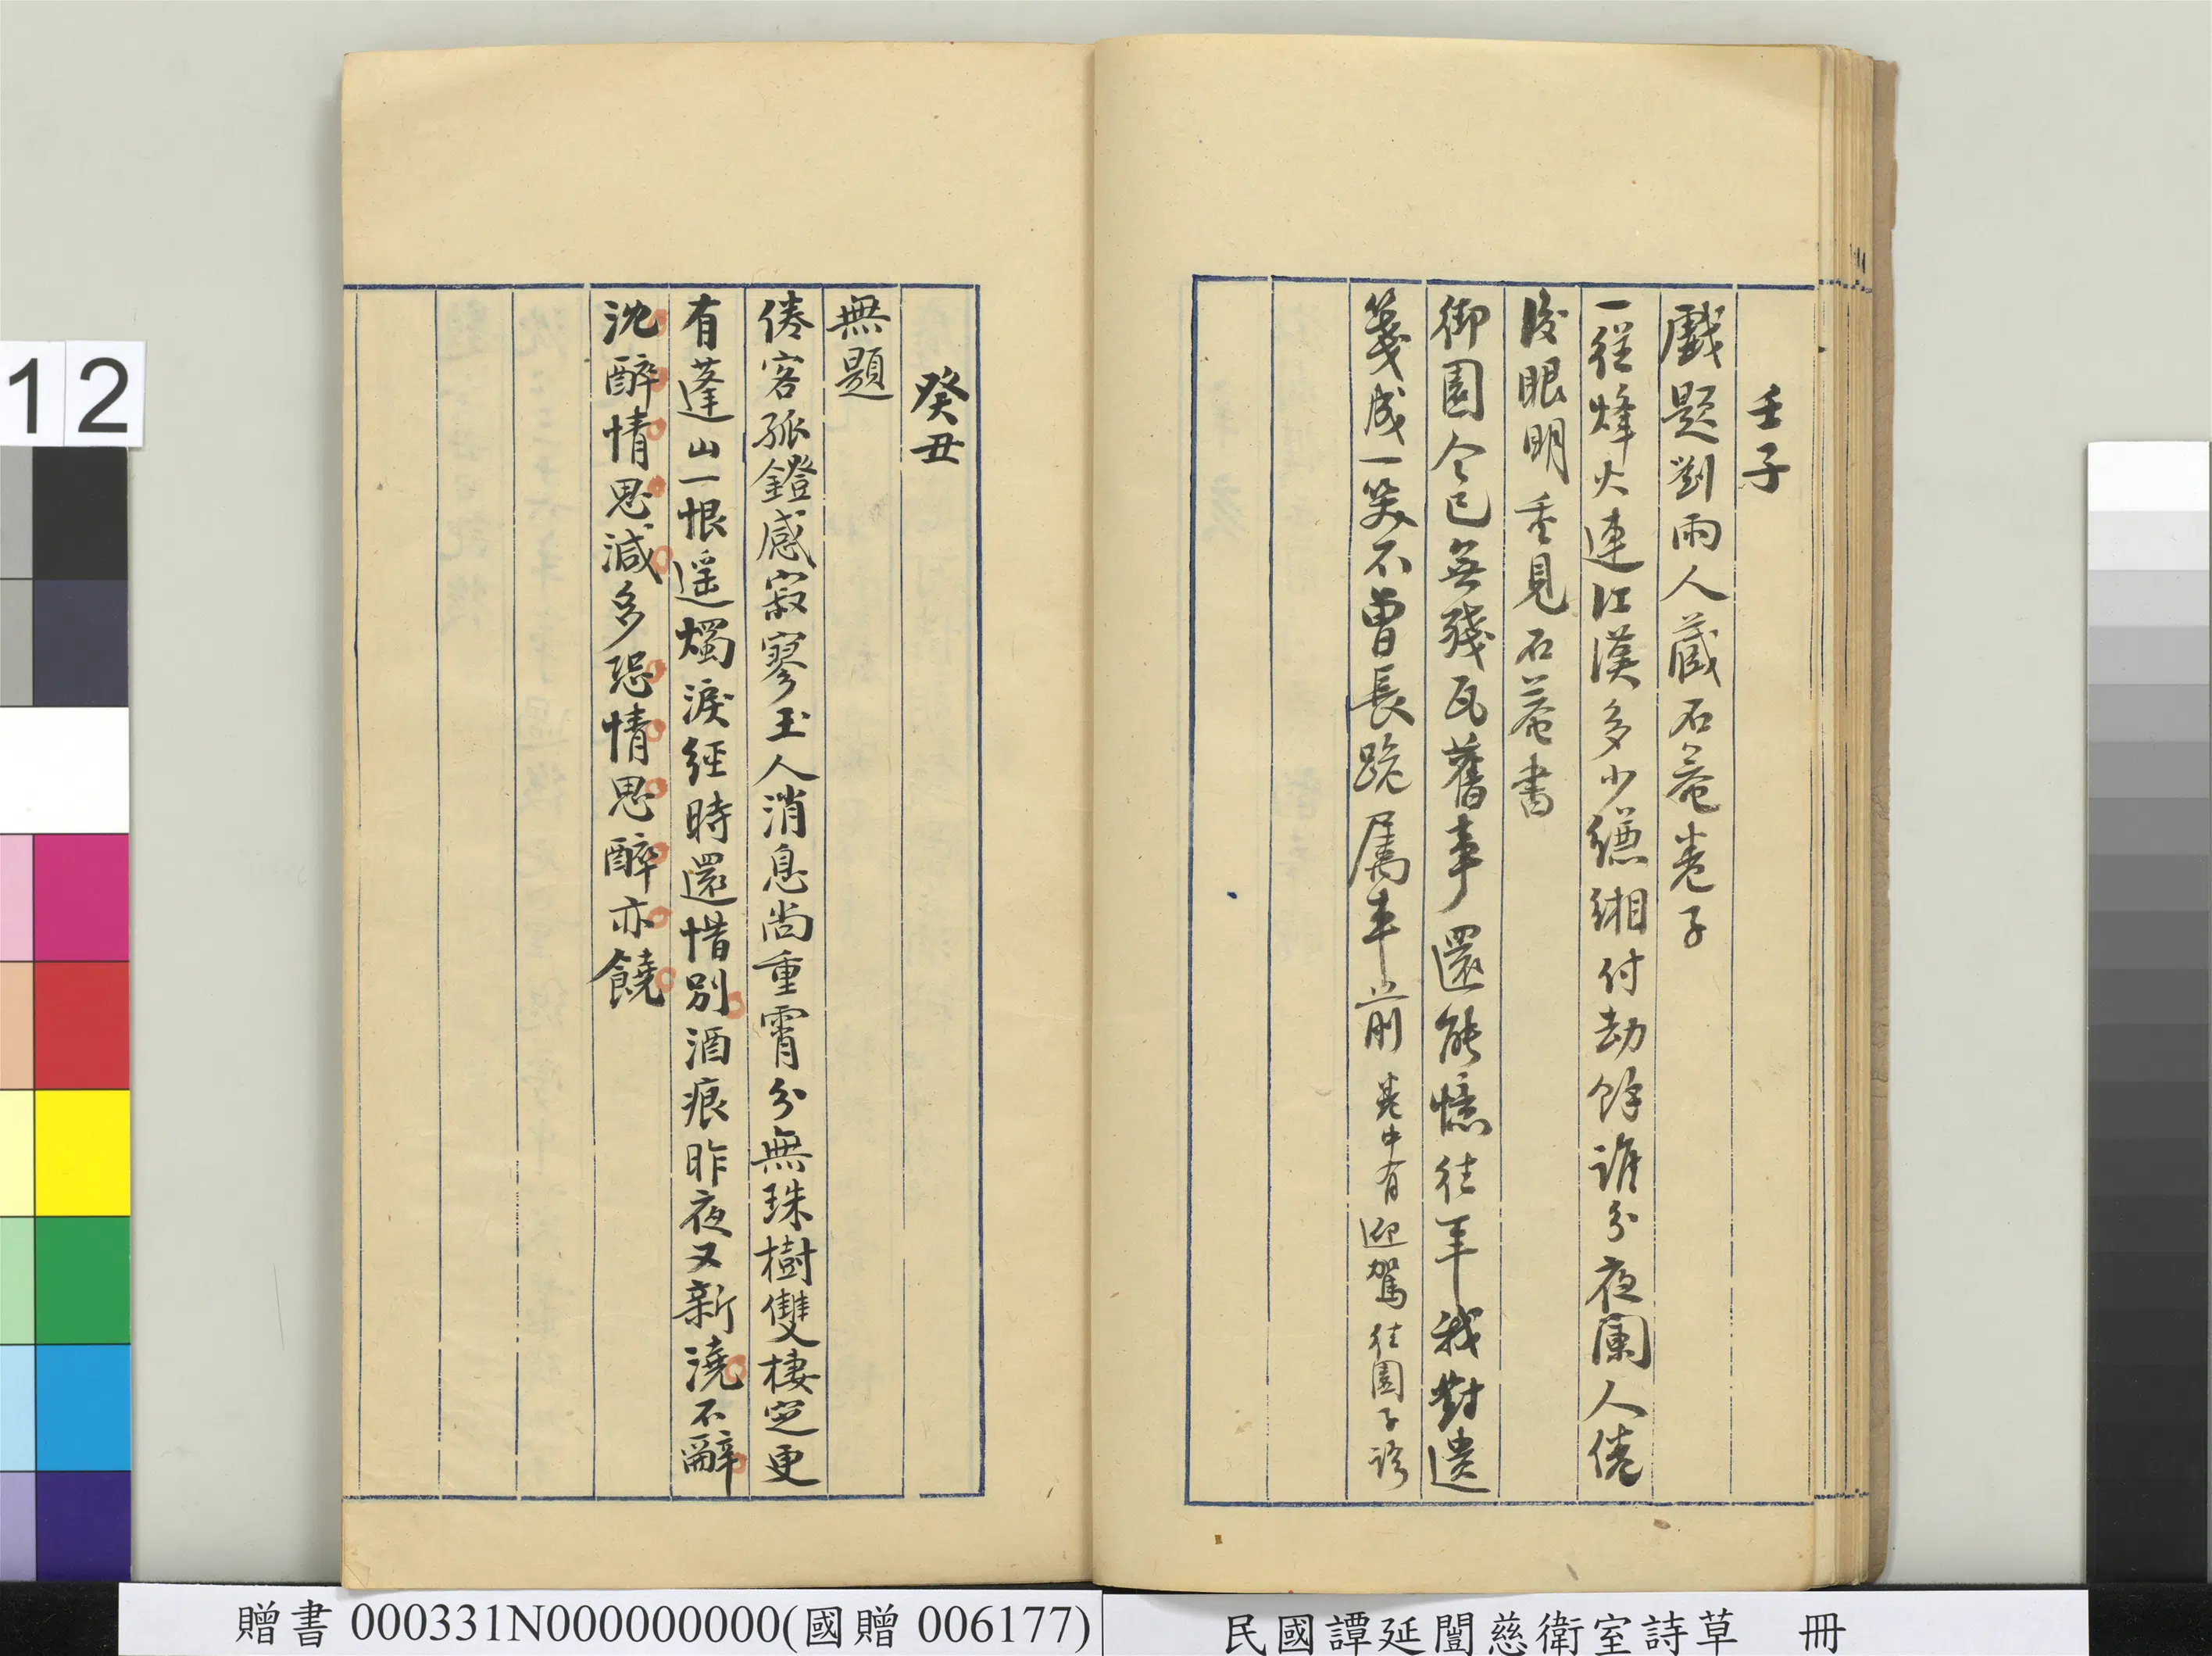 壬子
戲題劉雨人藏石菴卷子
一從烽火連江漢多少縑緗付劫餘誰分夜闌人倦
後眼明重見石菴書
御園今已無殘瓦舊事還能憶往年我對遺
箋成一笑不曾長跪屬車前 卷中有迎駕往園子諸
癸丑
無題
倦客孤鐙感寂寥玉人消息尚重霄分無珠樹雙棲定更
有蓬山一恨遥燭淚經時還惜別酒痕昨夜又新澆不辭
沈醉情思減多恐情思醉亦饒
12
贈書 000331N000000000(國贈 006177)
民國譚延闓慈衛室詩草 冊